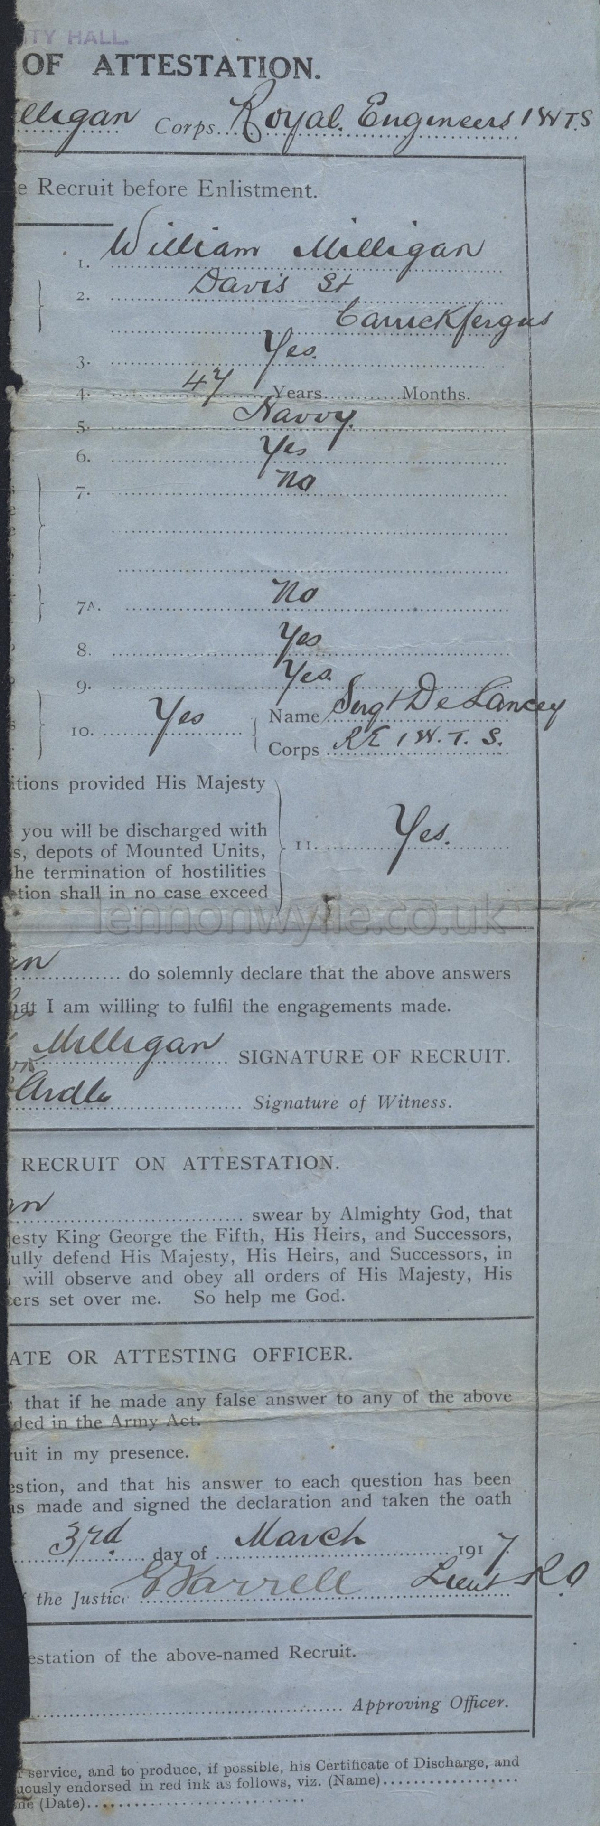 TY HALL.
OF ATTESTATION.
lligan Corps Royal Engineers IWTS
e Recruit before Enlistment.
1. William Milligan
2. Davis St
Carrickfergus
3. Yes
4. 47 Years Months.
5. Navvy.
6. Yes
7. No
7A. No
8. Yes
9. Yes
10. Yes Name Sergt De Lancey
Corps RE IW.T.S.
itions provided His Majesty
you will be discharged with
s, depots of Mounted Units,
he termination of hostilities
tion shall in no case exceed
11. Yes.
lennonwylie.co.uk
an do solemnly declare that the above answers
hat I am willing to fulfil the engagements made.
Milligan SIGNATURE OF RECRUIT.
Ardle Signature of Witness.
RECRUIT ON ATTESTATION.
an swear by Almighty God, that
jesty King George the Fifth, His Heirs, and Successors,
fully defend His Majesty, His Heirs, and Successors, in
will observe and obey all orders of His Majesty, His
ers set over me. So help me God.
ATE OR ATTESTING OFFICER.
that if he made any false answer to any of the above
ded in the Army Act.
uit in my presence.
estion, and that his answer to each question has been
as made and signed the declaration and taken the oath
3rd day of March 1917
f the Justice Farrell Lieut RO
estation of the above-named Recruit.
Approving Officer.
service, and to produce, if possible, his Certificate of Discharge, and
uously endorsed in red ink as follows, viz. (Name)
me (Date)